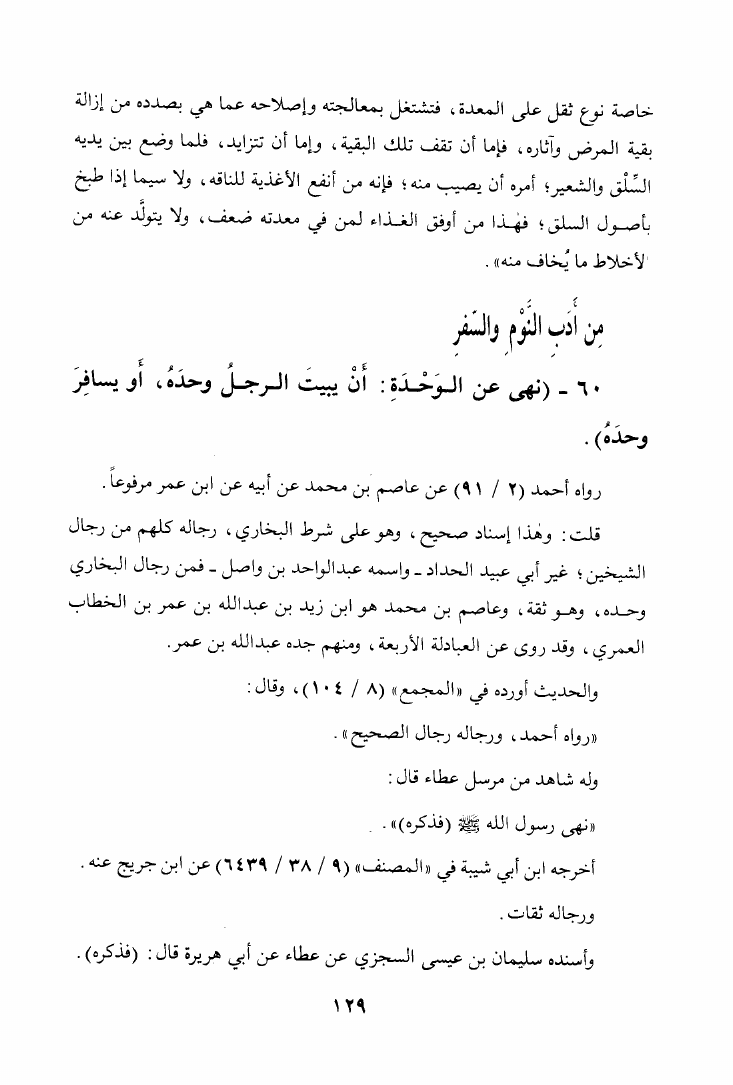 خاصة نوع ثقل على المعدة، فتشتغل بمعالجته وإصلاحه عما هي بصدده من إزالة
بقية المرض وآثاره، فإما أن تقف تلك البقية، وإما أن تتزايد، فلما وضع بين يديه
السِّلْق والشعير؛ أمره أن يصيب منه؛ فإنه من أنفع الأغذية للناقه، ولا سيما إذا طبخ
بأصـول السلق؛ فهٰـذا من أوفق الغـذاء لمن في معدته ضعف، ولا يتولَّد عنه من
لأخلاط ما يُخاف منه».
مِن أَدَبِ النَّوْمِ والسَّفرِ
٦٠ - (نهى عن الـوَحْـدَةِ: أَنْ يبيتَ الـرجـلُ وحدَهُ، أَو يسافِرَ
وحدَهُ).
رواه أحمد (٢ / ٩١) عن عاصم بن محمد عن أبيه عن ابن عمر مرفوعاً.
قلت: وهٰذا إسناد صحيح، وهو على شرط البخاري، رجاله كلهم من رجال
الشيخين؛ غير أبي عبيد الحداد ـ واسمه عبدالواحد بن واصل ـ فمن رجال البخاري
وحـده، وهـو ثقة، وعاصم بن محمد هو ابن زيد بن عبدالله بن عمر بن الخطاب
العمري، وقد روى عن العبادلة الأربعة، ومنهم جده عبدالله بن عمر.
والحديث أورده في «المجمع» (٨ / ١٠٤)، وقال:
«رواه أحمد، ورجاله رجال الصحيح».
وله شاهد من مرسل عطاء قال:
«نهى رسول الله ﷺ (فذكره)».
أخرجه ابن أبي شيبة في «المصنف» (٩ / ٣٨ / ٦٤٣٩) عن ابن جريج عنه.
ورجاله ثقات.
وأسنده سليمان بن عيسى السجزي عن عطاء عن أبي هريرة قال: (فذكره).
١٢٩